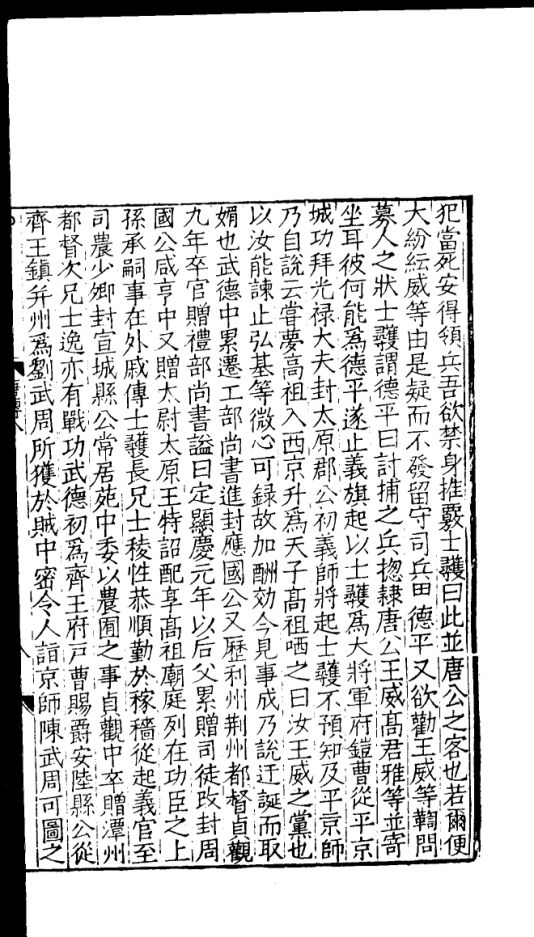 犯當死安得領兵吾欲禁身推覈士彠曰此並唐公之客也若爾便
大紛紜威等由是疑而不發留守司兵田德平又欲勸王威等鞫問
募人之狀士彠謂德平曰討捕之兵揔隸唐公王威髙君雅等並寄
坐耳彼何能爲德平遂止義旗起以士彠爲大將軍府鎧曹從平京
城功拜光禄大夫封太原郡公初義師將起士彠不預知及平京師
乃自說云嘗夢髙祖入西京升爲天子髙祖哂之曰汝王威之黨也
以汝能諫止弘基等微心可録故加酬効今見事成乃說迂誕而取
媚也武德中累遷工部尚書進封應國公又歷利州荆州都督貞觀
九年卒官贈禮部尚書謚曰定顯慶元年以后父累贈司徒改封周
國公咸亨中又贈太尉太原王特詔配享髙祖廟庭列在功臣之上
孫承嗣事在外戚傳士彠長兄士稜性恭順勤於稼穡從起義官至
司農少卿封宣城縣公常居苑中委以農囿之事貞觀中卒贈潭州
都督次兄士逸亦有戰功武德初爲齊王府戸曹賜爵安陸縣公從
齊王鎮并州爲劉武周所獲於賊中密令人詣京師陳武周可圖之